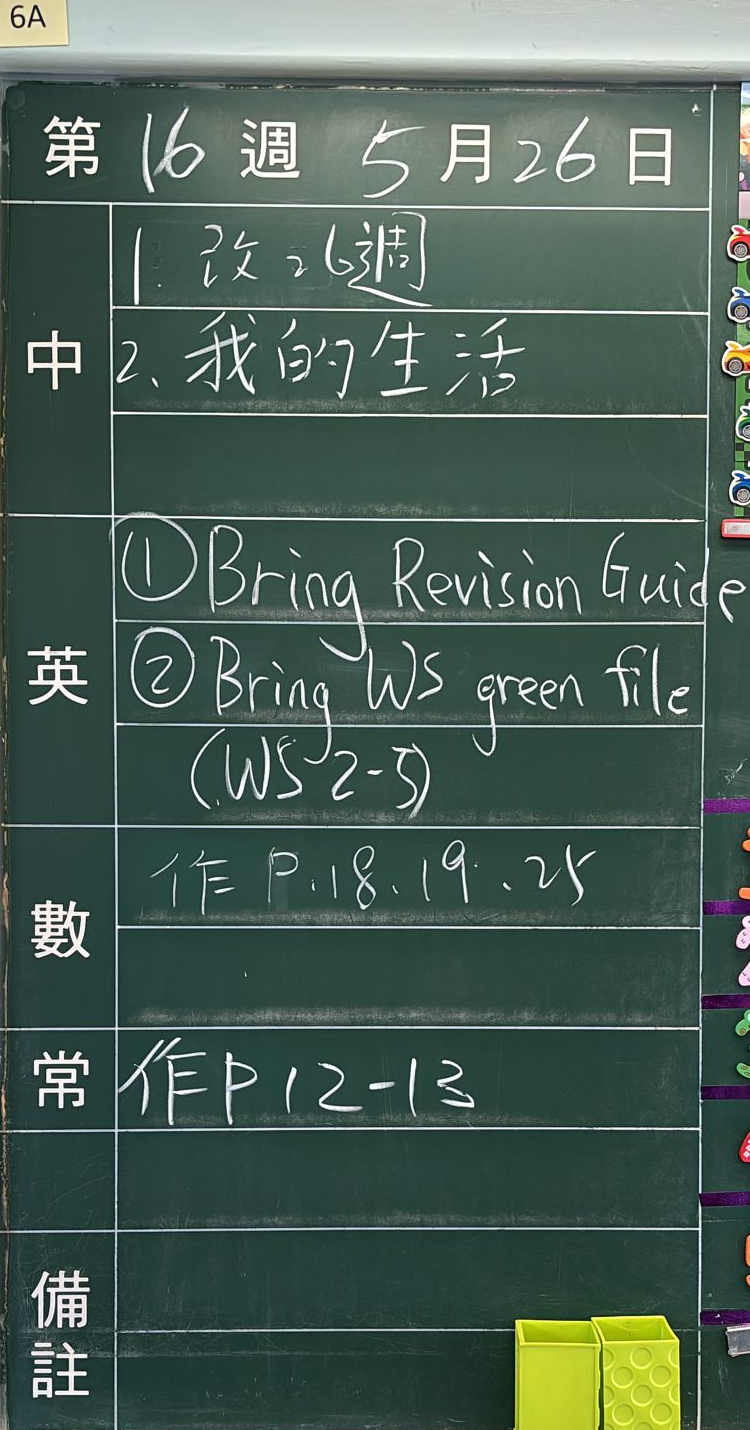 6A
第 16 週 5 月 26 日
中
1. 改 26週
2. 我的生活
英
① Bring Revision Guide
② Bring WS green file
(WS 2-5)
數
作 P.18、19、25
常
作P12-13
備註